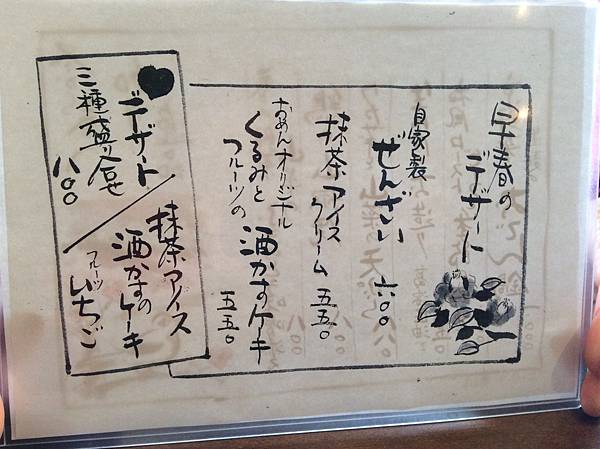 早春の
デザート
自家製
ぜんざい 六〇〇
抹茶アイス
クリーム 五五〇
おめんオリジナル
くるみと
フルーツの
酒かすケーキ
五五〇
デザート
三種盛り合せ
八〇〇
抹茶アイス
酒かすの
ケーキ
フルーツ
いちご